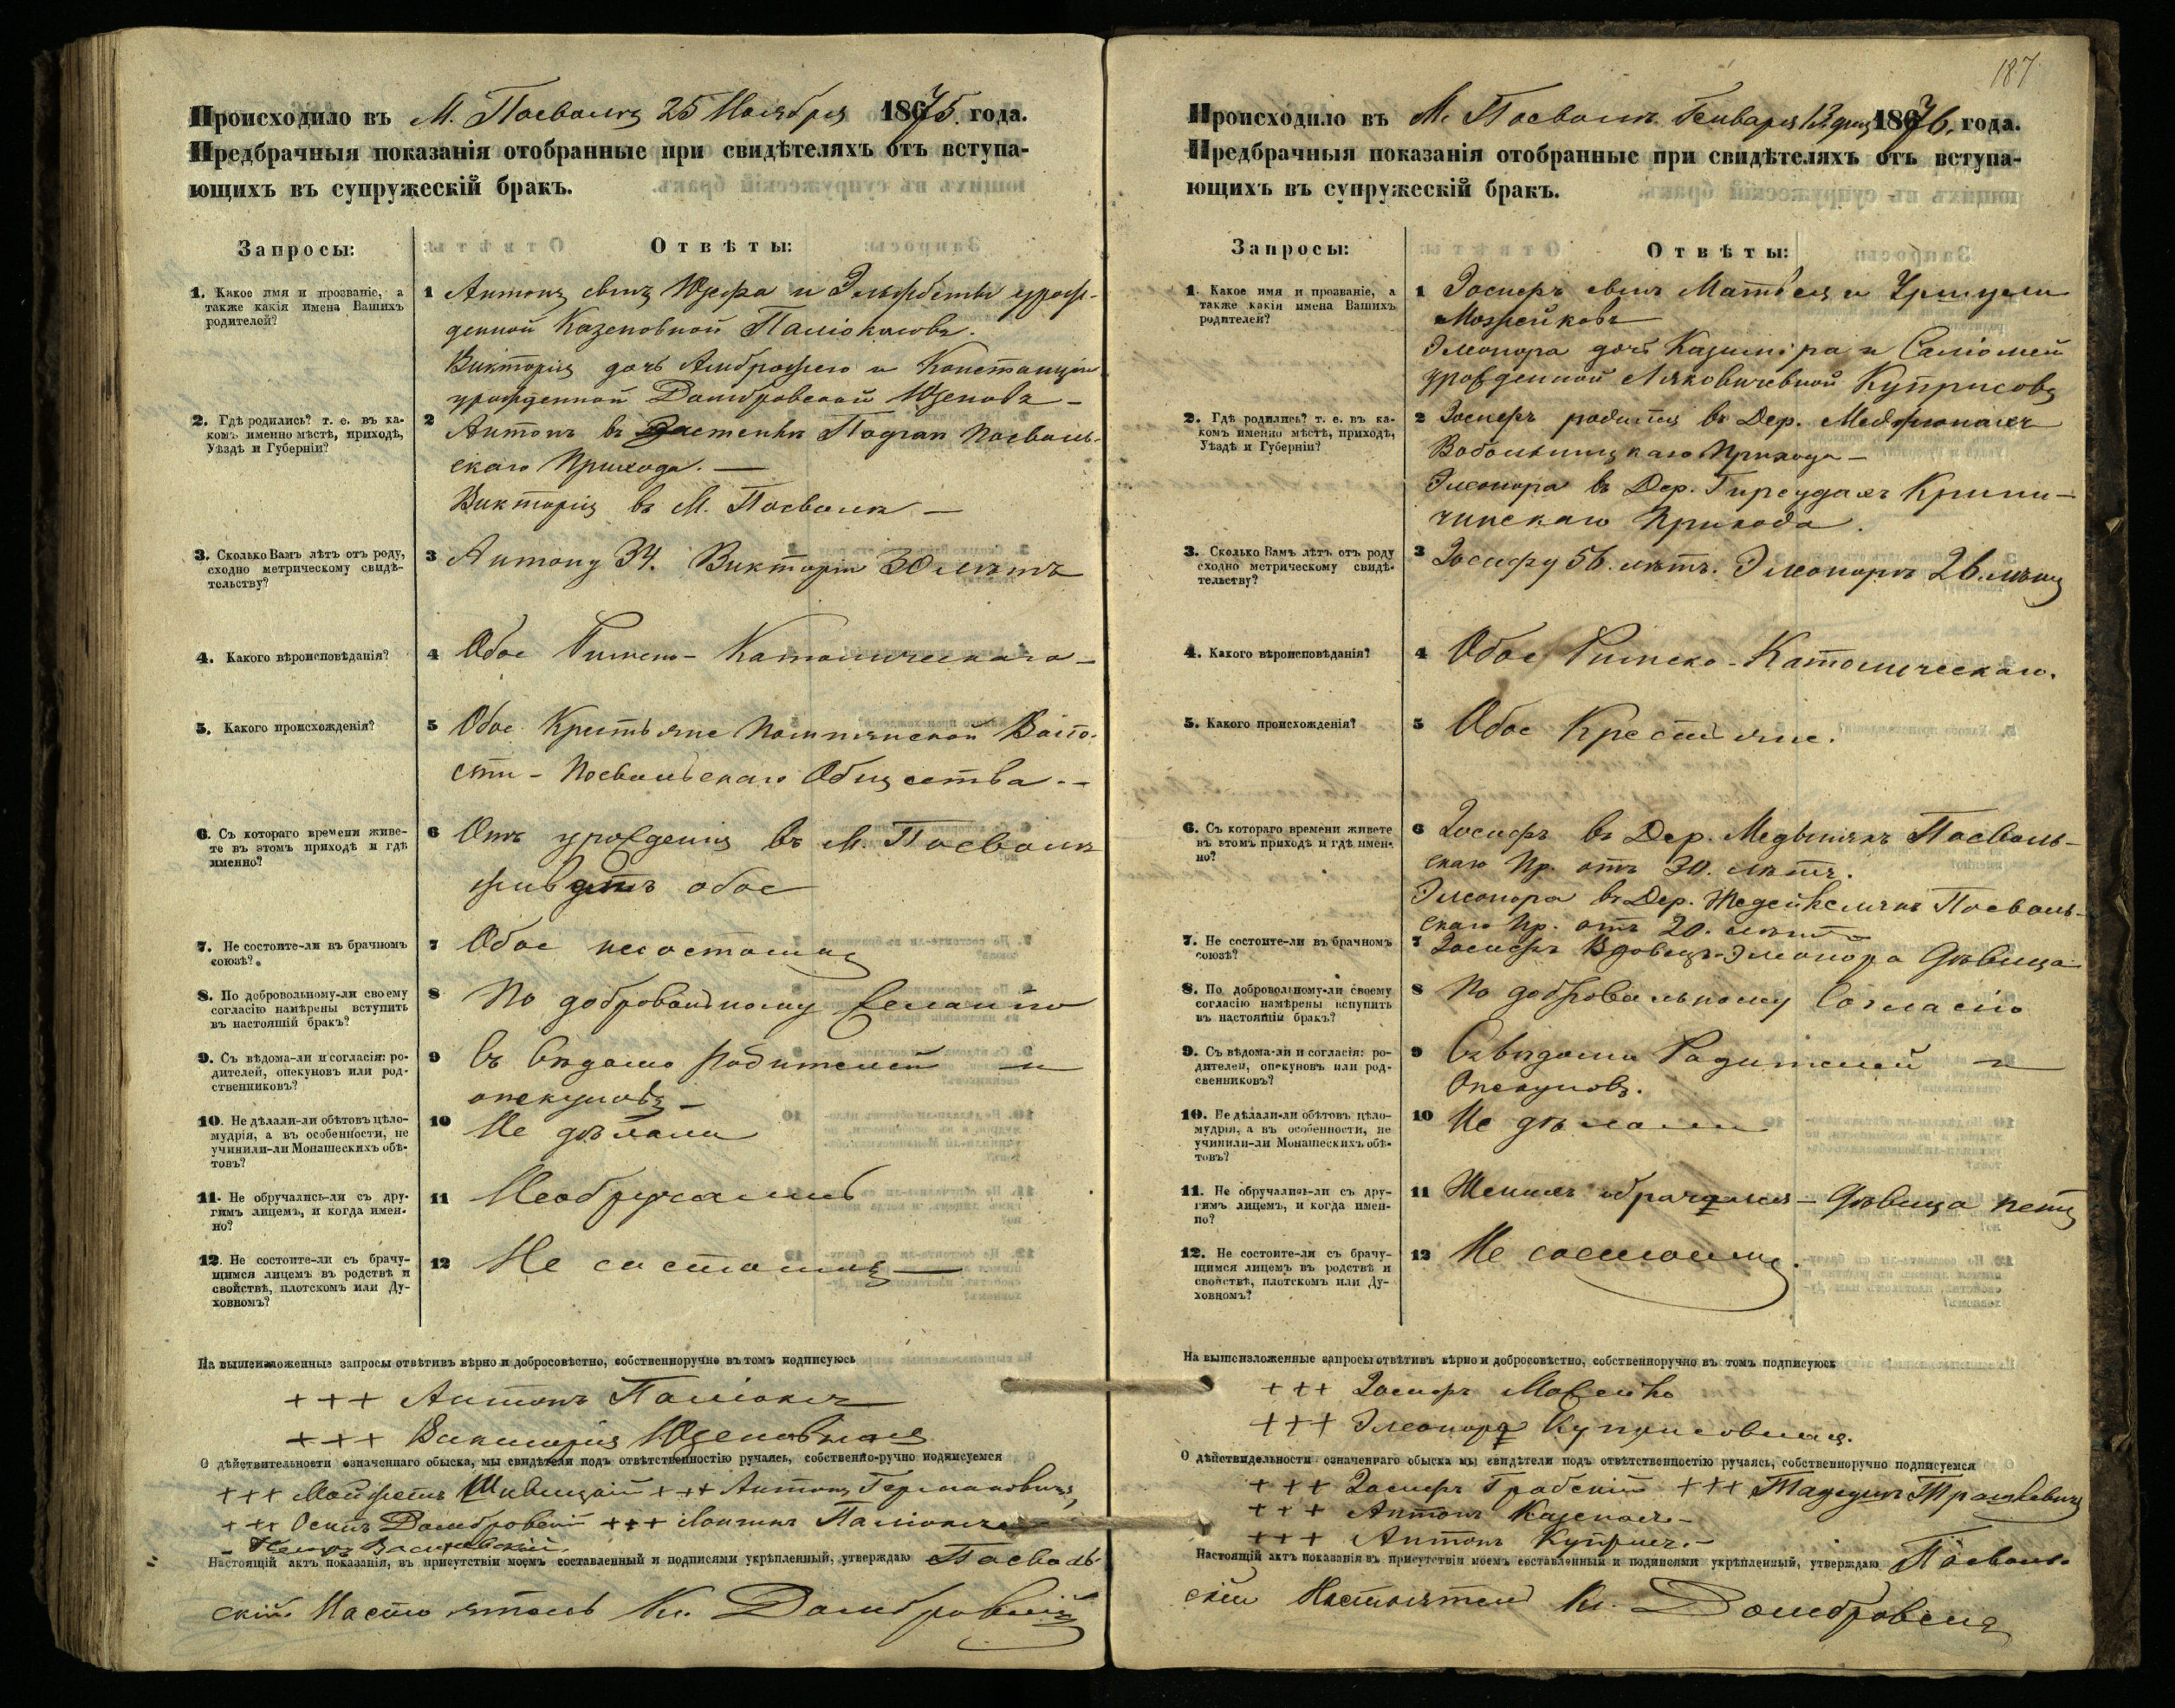 Происходило въ М. Посволѣ 25 Ноября 1875. года.
Предбрачныя показанія отобранные при свидѣтеляхъ отъ вступа-
ющихъ въ супружескій бракъ.
Запросы: Отвѣты:
1. Какое имя и прозваніе, а
также какія имена Вашихъ
родителей?
1 Антонъ сынъ Юзефа и Эльжбеты урож-
денной
Викторія дочь Амброжего и Констанціи
урожденной Домбровской
2. Гдѣ родились? т. е. въ ка-
комъ именно мѣстѣ, приходѣ,
Уѣздѣ и Губерніи?
2 Антонъ въ Посволь-
скаго Прихода. —
Викторія въ М. Посволѣ —
3. Сколько Вамъ лѣтъ отъ роду,
сходно метрическому свидѣ-
тельству?
3 Антону 34. Викторіи 30 лѣтъ
4. Какого вѣроисповѣданія?
4 Обое Римско-Католическаго —
5. Какого происхожденія?
5 Обое Крестьяне Воло-
сти - Посвольскаго Общества. -
6. Съ котораго времени живе-
те въ этомъ приходѣ и гдѣ
именно?
6 Отъ урожденія въ М. Посволѣ
обое
7. Не состоите-ли въ брачномъ
союзѣ?
7 Обое несостоящ
8. По добровольному-ли своему
согласію намѣрены вступить
въ настоящій бракъ?
8 По добровольному желанію
9. Съ вѣдома-ли и согласія: ро-
дителей, опекуновъ или род-
ственниковъ?
9 Съ вѣдомо Родителей и
опекуновъ —
10. Не дѣлали-ли обѣтовъ цѣло-
мудрія, а въ особенности, не
учинили-ли Монашескихъ обѣ-
товъ?
10 Не дѣлали
11. Не обручались-ли съ дру-
гимъ лицемъ, и когда имен-
но?
11 Необручались
12. Не состоите-ли съ брачу-
щимся лицемъ въ родствѣ и
свойствѣ, плотскомъ или Ду-
ховномъ?
12 Не состоящ —
На вышеизложенные запросы отвѣтивъ вѣрно и добросовѣстно, собственноручно въ томъ подписуюсь
+++ Антонъ Паліокасъ
+++ Викторія
О дѣйствительности означеннаго обыска, мы свидѣтели подъ отвѣтственностію ручаясь, собственно-ручно подписуемся
+++ +++ Антонъ Германовичъ,
+++ Осипъ Домбровскій +++
Настоящій актъ показанія, въ присутствіи моемъ составленный и подписями укрѣпленный, утверждаю Посволь-
скій Настоятель Кс. Домбровскій
187
Происходило въ М. Посволѣ Генваря 13 дня 1876. года.
Предбрачныя показанія отобранные при свидѣтеляхъ отъ вступа-
ющихъ въ супружескій бракъ.
Запросы: Отвѣты:
1. Какое имя и прозваніе, а
также какія имена Вашихъ
родителей?
1 Іосифъ сынъ Матвея и Уршули
Можейковъ
Элеонора дочь Казиміра и Саломеи
урожденной Куприсовъ
2. Гдѣ родились? т. е. въ ка-
комъ именно мѣстѣ, приходѣ,
Уѣздѣ и Губерніи?
2 Іосифъ родился въ Дер.
Вобольницкаго Прихода —
Элеонора въ Дер. Крини-
чинскаго Прихода.
3. Сколько Вамъ лѣтъ отъ роду
сходно метрическому свидѣ-
тельству?
3 Іосифу 56. лѣтъ. Элеонорѣ 26. лѣтъ
4. Какого вѣроисповѣданія?
4 Обое Римско-Католическаго.
5. Какого происхожденія?
5 Обое Крестьяне.
6. Съ котораго времени живете
въ этомъ приходѣ и гдѣ имен-
но?
6 Іосифъ въ Дер. Посволь-
скаго Пр. отъ 30. лѣтъ.
Элеонора въ Дер. Посволь-
скаго Пр. отъ 20. лѣтъ
7. Не состоите-ли въ брачномъ
союзѣ?
7 Іосифъ Вдовецъ - Элеонора Дѣвица
8. По добровольному-ли своему
согласію намѣрены вступить
въ настоящій бракъ?
8 По добровольному Согласію
9. Съ вѣдома-ли и согласія: ро-
дителей, опекуновъ или род-
свенниковъ?
9 Съ вѣдома Родителей и
Опекуновъ.
10. Не дѣлали-ли обѣтовъ цѣло-
мудрія, а въ особенности, не
учинили-ли Монашескихъ обѣ-
товъ?
10 Не дѣлали
11. Не обручались-ли съ дру-
гимъ лицемъ, и когда имен-
но?
11 Женихъ обручался - Дѣвица нетъ
12. Не состоите-ли съ брачу-
щимся лицемъ въ родствѣ и
свойствѣ, плотскомъ или Ду-
ховномъ?
12 Не состоящ.
На вышеизложенные запросы отвѣтивъ вѣрно и добросовѣстно, собственноручно въ томъ подписуюсь
+++ Іосифъ Можейко
+++ Элеонора Куприсовная.
О дѣйствидельности означеннаго обыска мы свидѣтели подъ отвѣтственностію ручаясь, собственноручно подписуемся
+++ Іосифъ Грабскій +++ Тадеушъ Трашкевичъ
+++ Антонъ
+++ Антонъ Куприсъ. -
Настоящій актъ показанія въ присутствіи моемъ составленный и подписями укрѣпленный, утверждаю Посволь-
скій Настоятель Кс. Домбровскій